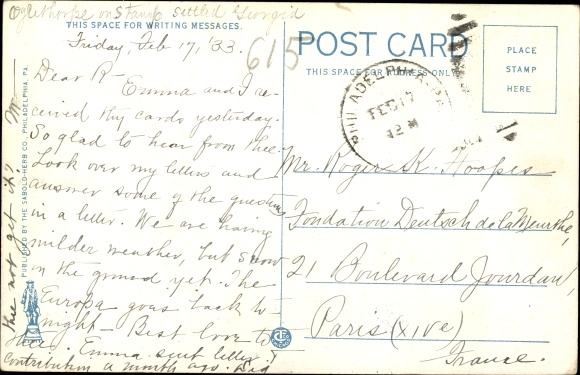 Oglethorpe on Stamp settled Georgia
THIS SPACE FOR WRITING MESSAGES.
Friday, Feb 17, '33.
615
Dear R-
Emma and I re-
ceived thy cards yesterday.
So glad to hear from thee.
Look over my letters and
answer some of the questions
in a letter. We are having
milder weather, but snow
on the ground yet. The
Europa goes back to-
night - Best love to
thee. Emma sent letter &
contribution a month ago. Did
thee not get it? M
PUBLISHED BY THE SABOLD-HERB CO. PHILADELPHIA, PA.
POST CARD
THIS SPACE FOR ADDRESS ONLY
PLACE
STAMP
HERE
PHILADELPHIA, PA.
FEB 17
12 M
Mr. Roger K. Hoopes
Fondation Deutsch de la Meurthe,
21 Boulevard Jourdan,
Paris (XIVe)
France.